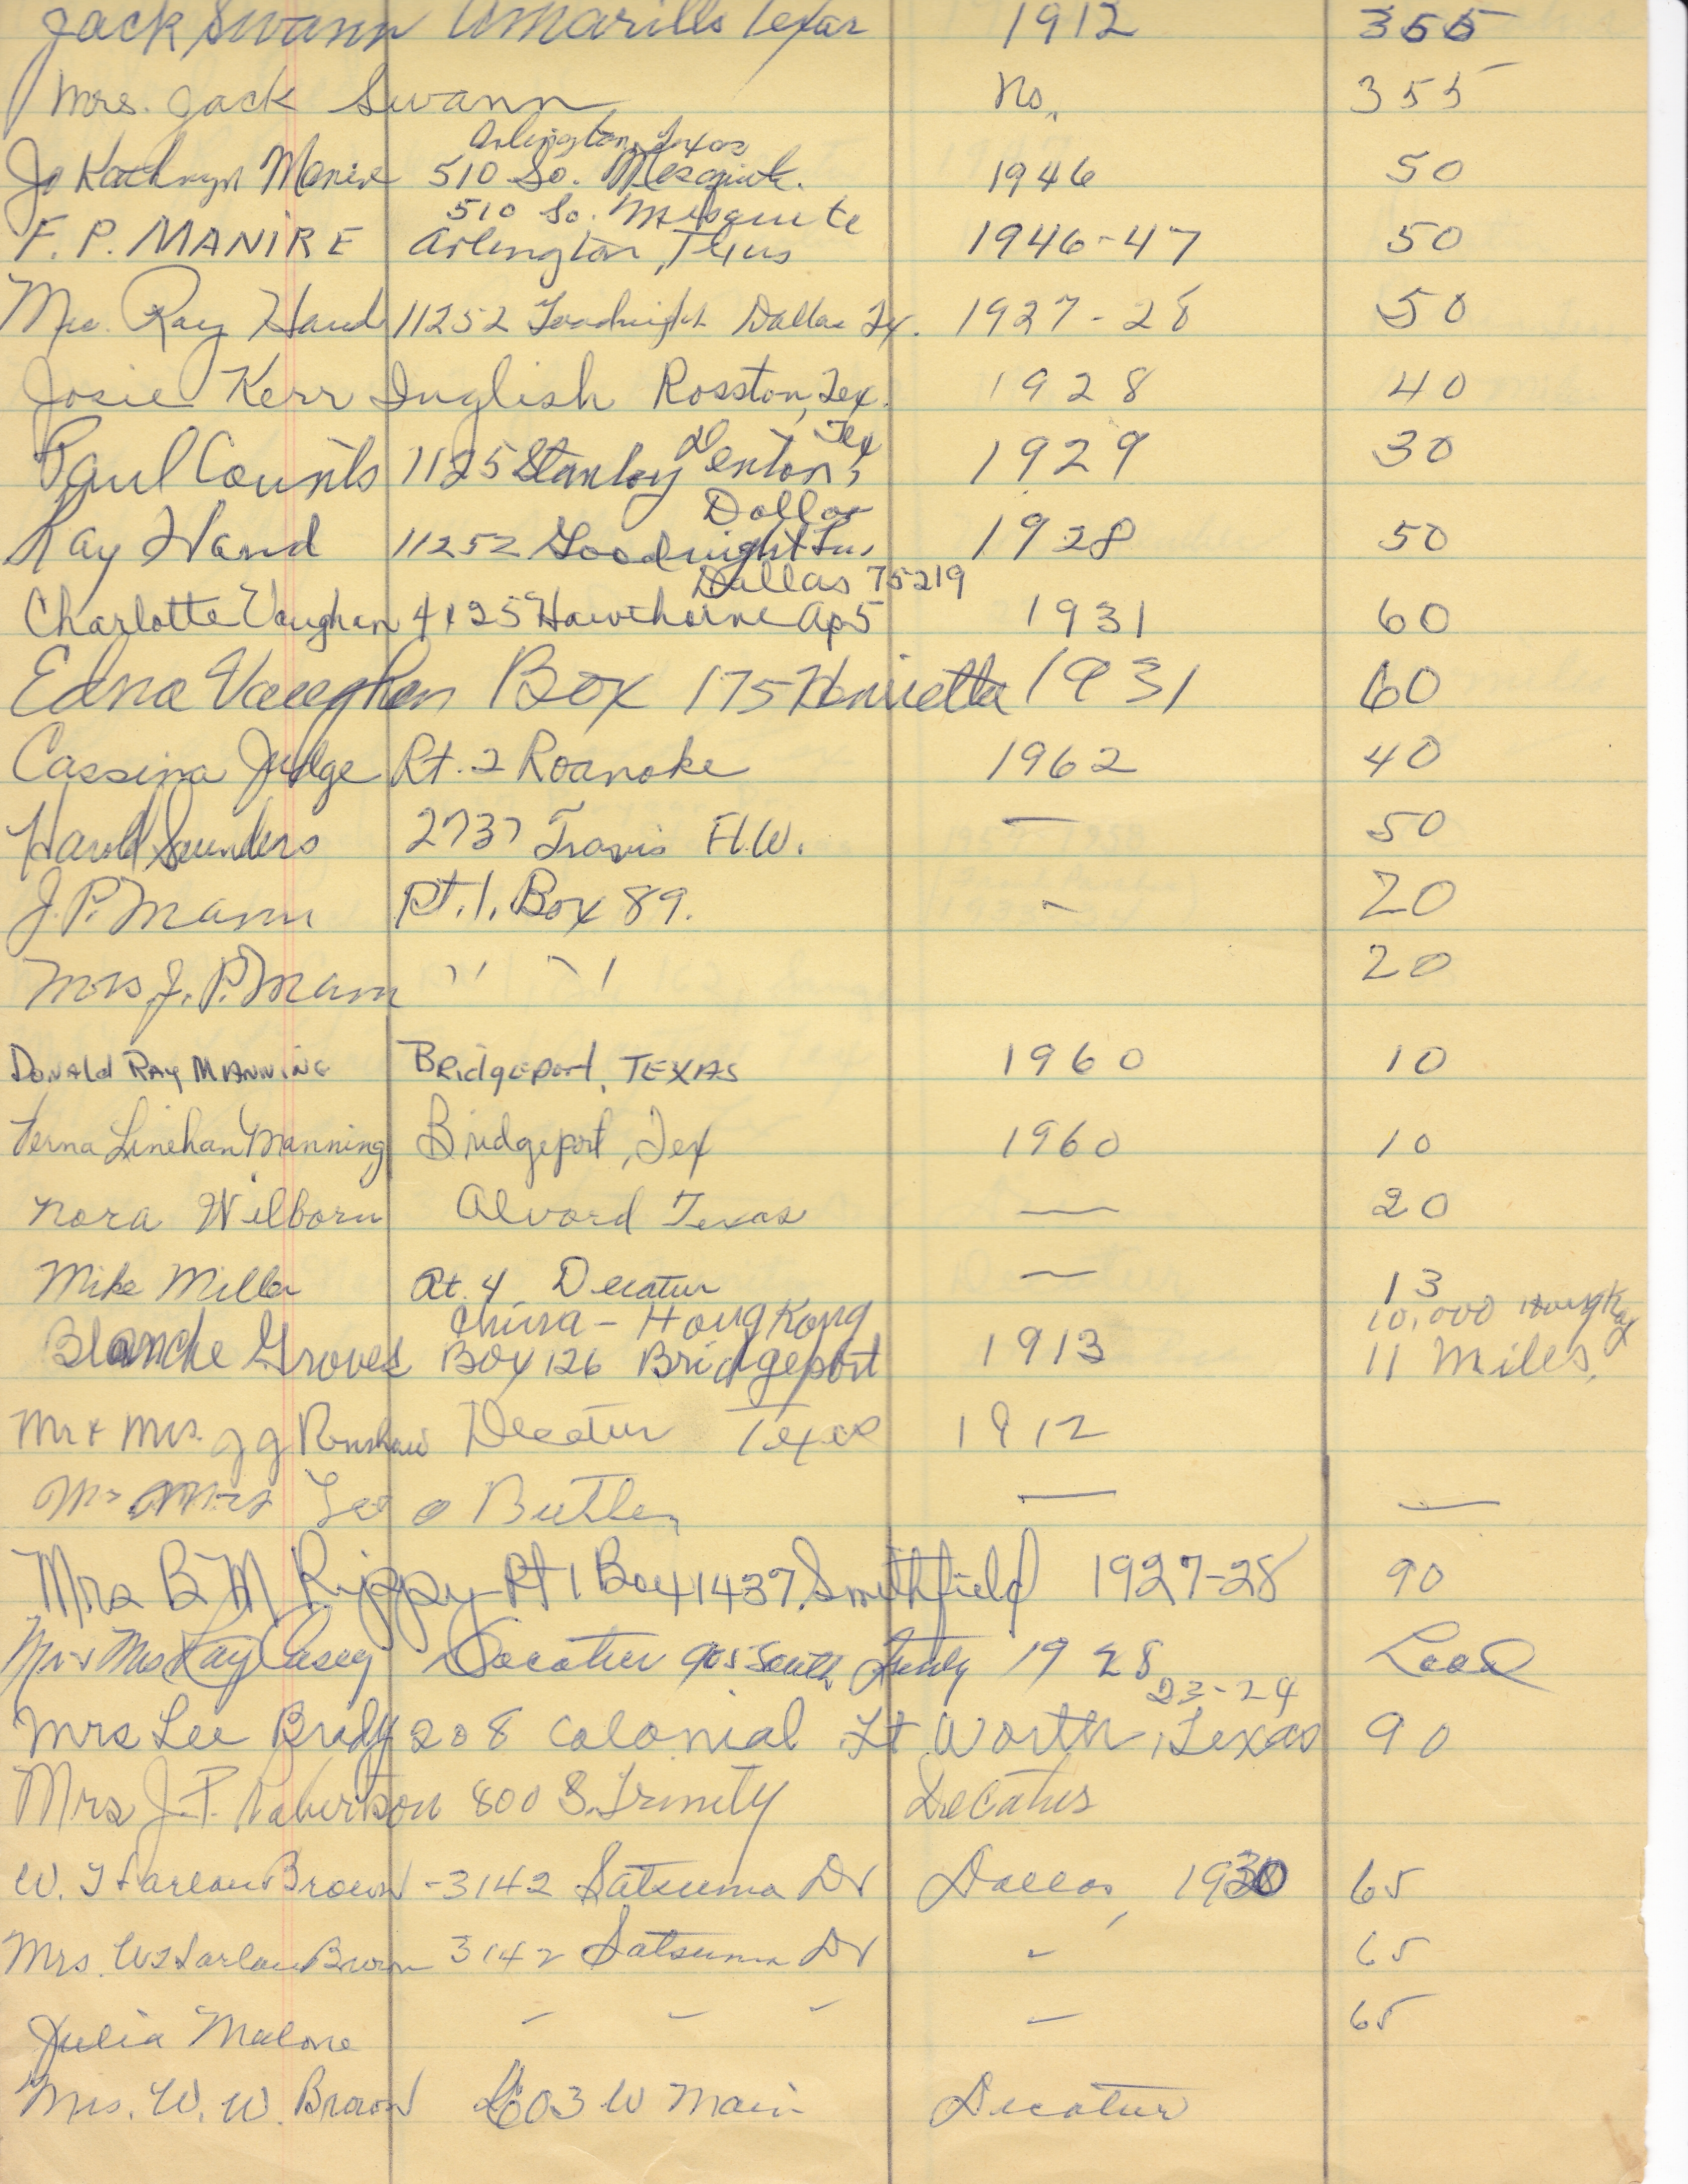 Jack Swann Amarillo Texas 1912 355
Mrs. Jack Swann No. 355
Arlington, Texas
Jo Kathryn Manire 510 So. Mesquite. 1946 50
510 So. Mesquite
F. P. MANIRE Arlington, Texas 1946-47 50
Mrs. Ray Hand 11252 Goodnight Dallas Tx. 1927-28 50
Josie Kerr Inglish Rosston, Tex. 1928 40
Tex
Paul Counts 1125 Stanley Denton, 1929 30
Dallas
Ray Hand 11252 Goodnight Ln, 1928 50
Dallas 75219
Charlotte Vaughan 4125 Hawthorne Ap5 1931 60
Edna Vaughan Box 175 Henrietta 1931 60
Cassina Judge Rt. 2 Roanoke 1962 40
Harold Saunders 2737 Travis Ft.W. — 50
J. P. Mann Rt. 1, Box 89. - 20
Mrs J. P. Mann " " 20
Donald Ray Manning Bridgeport, TEXAS 1960 10
Verna Linehan Manning Bridgeport, Tex 1960 10
Nora Wilborn Alvord Texas — 20
Mike Miller Rt. 4 Decatur — 13
China - Hong Kong 10,000 Hong Kong
Blanche Groves Box 126 Bridgeport 1913 11 Miles,
Mr & Mrs. J G Renshaw Decatur Texas 1912
Mr Mrs Leo Butler — —
Mrs B M Rippy - Rt 1 Box 1437, Smithfield 1927-28 90
Mr & Mrs Ray Casey Decatur 905 South Trinity 1928 Local
23-24
Mrs Lee Brady 208 Colonial Ft Worth, Texas 90
Mrs J. T. Robertson 800 S. Trinity Decatur
W. Harlan Brown - 3142 Satsuma Dr Dallas, 1930 65
Mrs. W Harlan Brown 3142 Satsuma Dr " 65
Julia Malone - - - - 65
Mrs. W. W. Brown 603 W Main Decatur